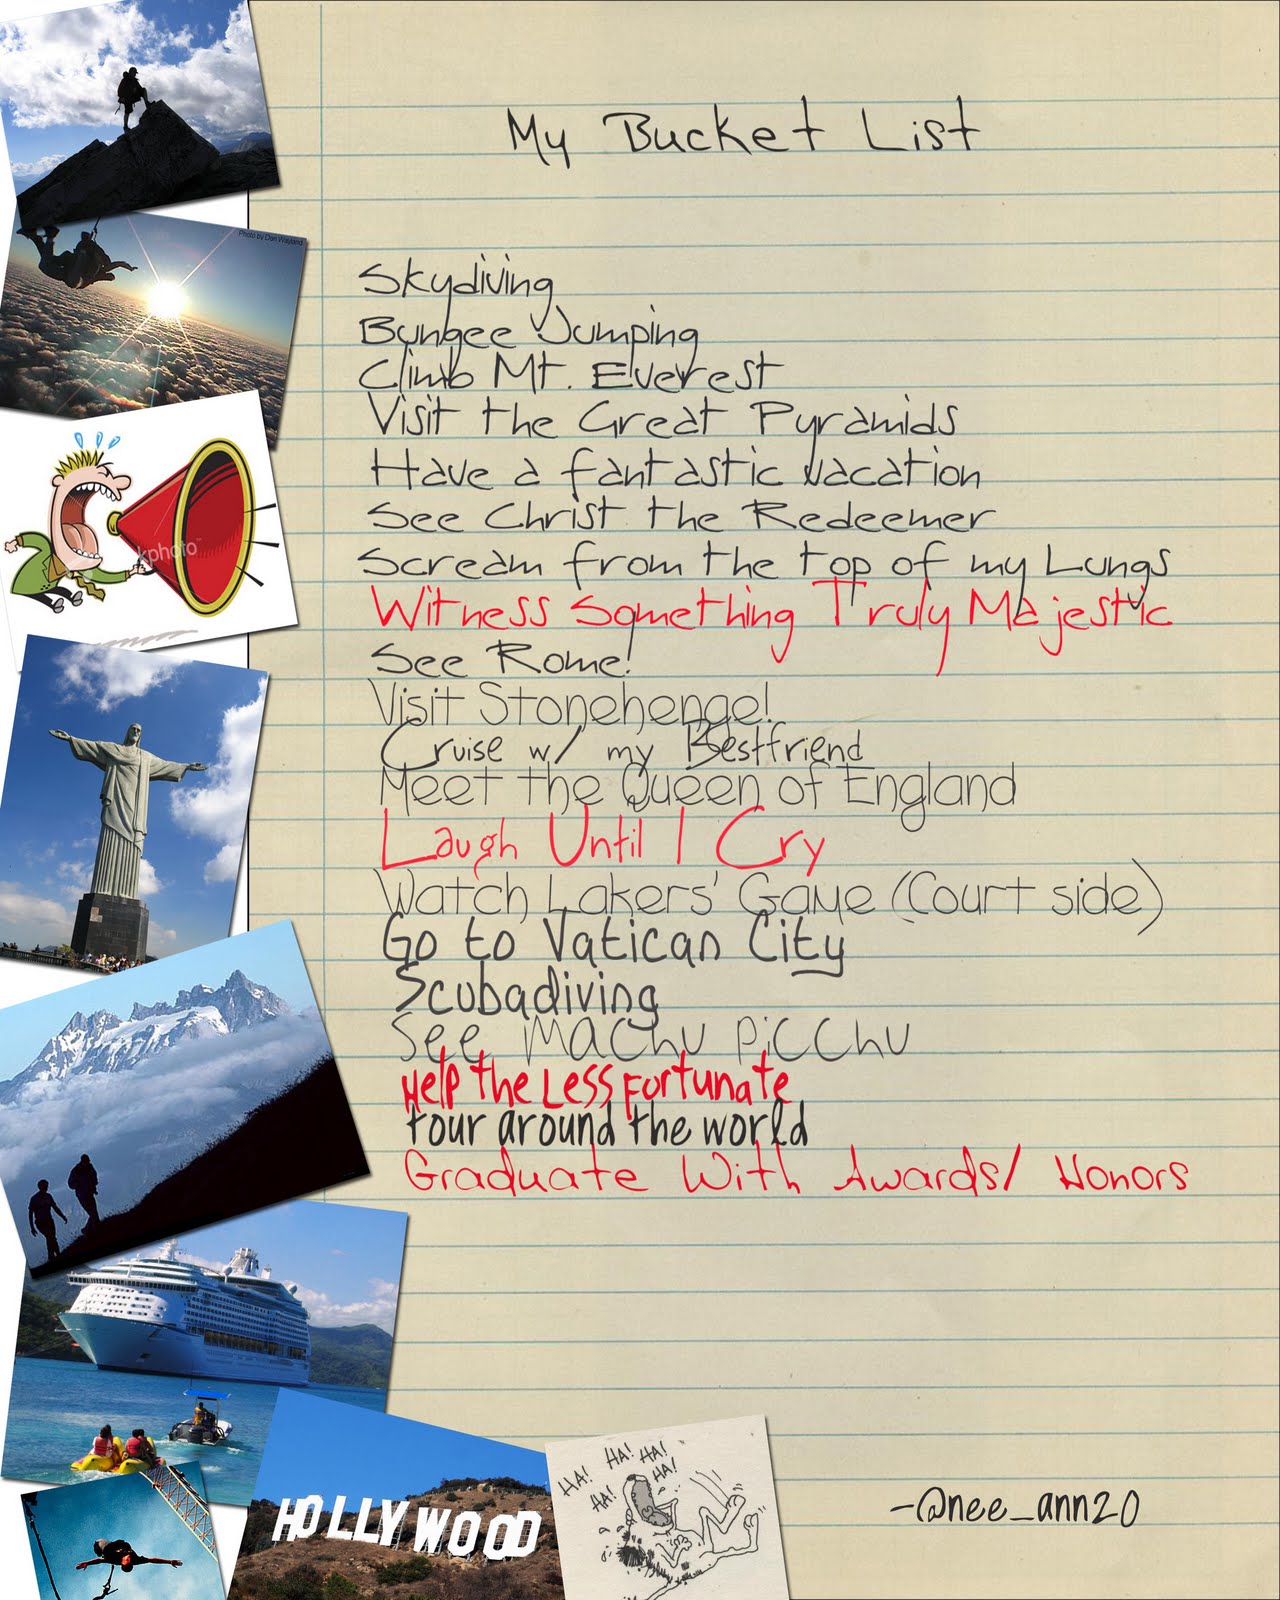 My Bucket List
Photo by Dan Wayland
Skydiving
Bungee Jumping
Climb Mt. Everest
Visit the Great Pyramids
Have a fantastic vacation
kphoto
See Christ the Redeemer
Scream from the top of my Lungs
Witness Something Truly Majestic
See Rome!
Visit Stonehenge!
Cruise w/ my Bestfriend
Meet the Queen of England
Laugh Until I Cry
Watch Lakers' Game (Court side)
Go to Vatican City
Scubadiving
See Machu Picchu
Help the Less Fortunate
tour around the world
Graduate With Awards/ Honors
HOLLYWOOD
HA! HA! HA! HA!
HA! HA!
-@nee_ann20